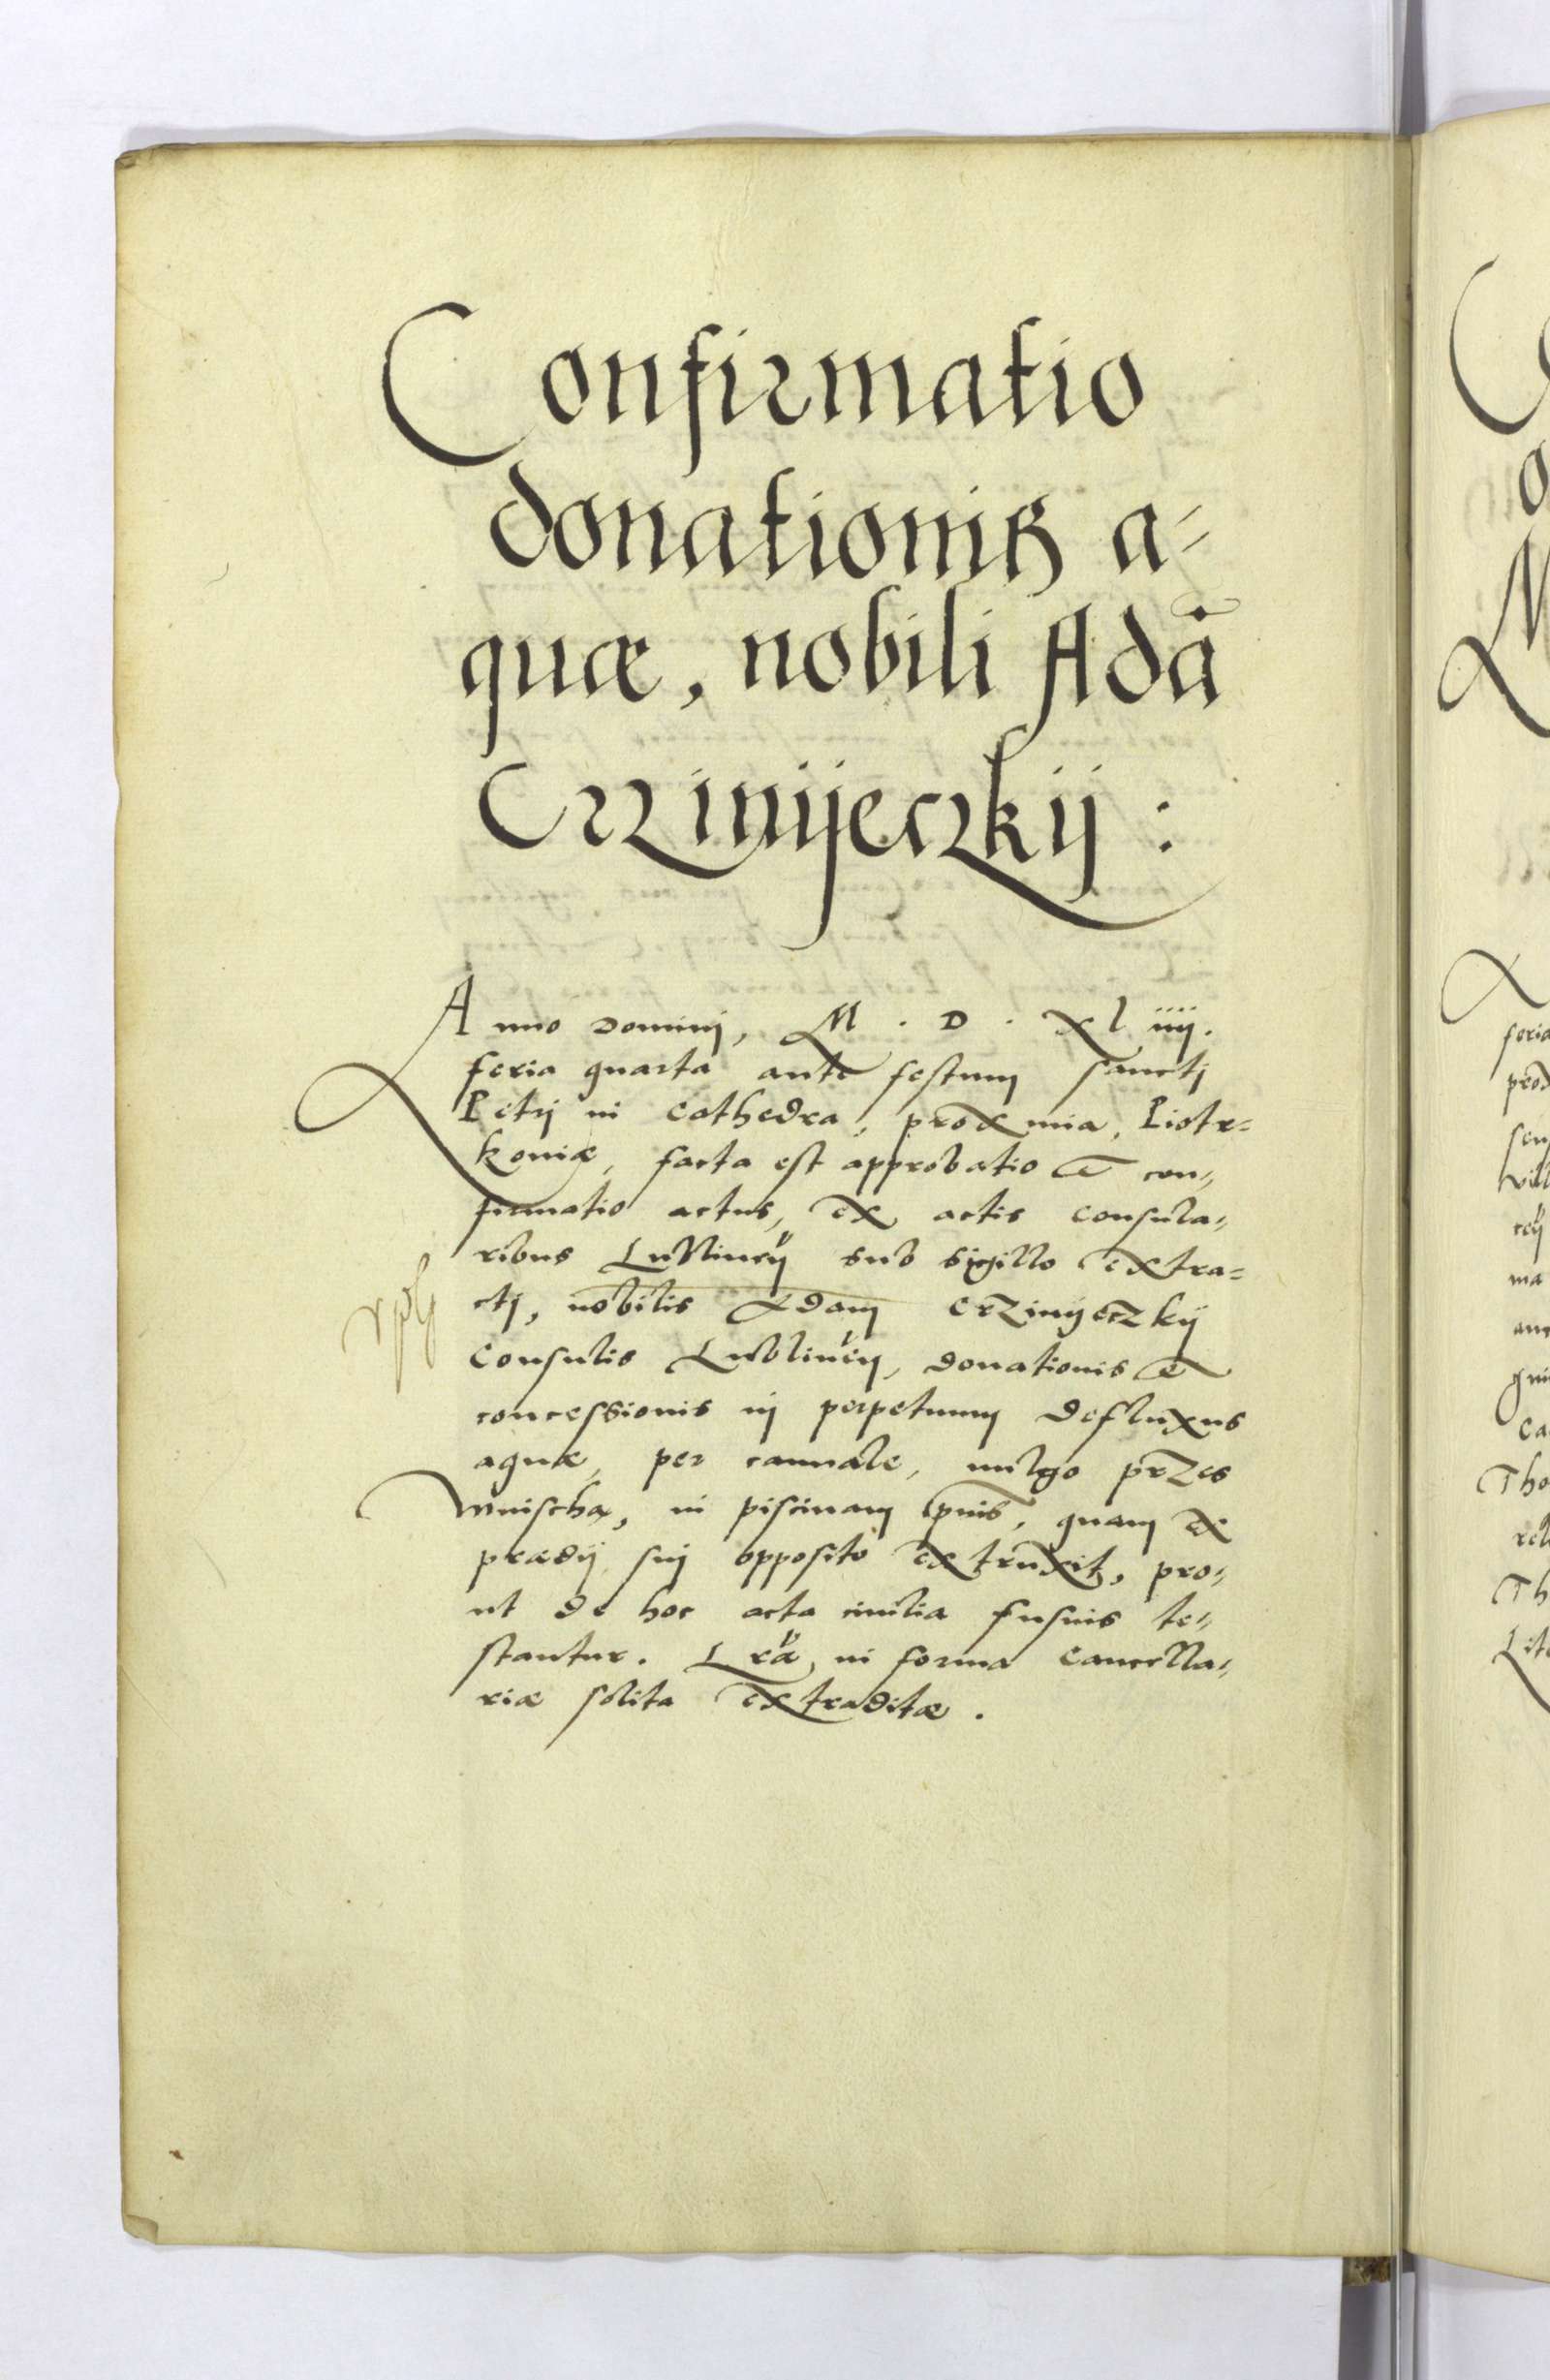 Confirmatio
donationis a-
quæ, nobili Adā
Crzinijeczkij:
Anno Dominj, M. D. XLiiij.
feria quarta ante festum sanctj
Petrj in Cathedra, proxima, Piotr-
koniæ, facta est approbatio et con-
firmatio actus, ex actis consula-
ribus Lublineñ sub sigillo extra-
ctj, nobilis Adam Crzinyeczkij
Consulis Lublineñ, donationis et
concessionis in perpetuum defluxus
aquæ, per cannale, uulgo przes
, in piscinam , quam ex
prædij suj opposito extruxit, pro-
ut de hoc acta ciuilia fusius te-
stantur. Lr̃æ in forma Cancella-
riæ solita extraditæ.